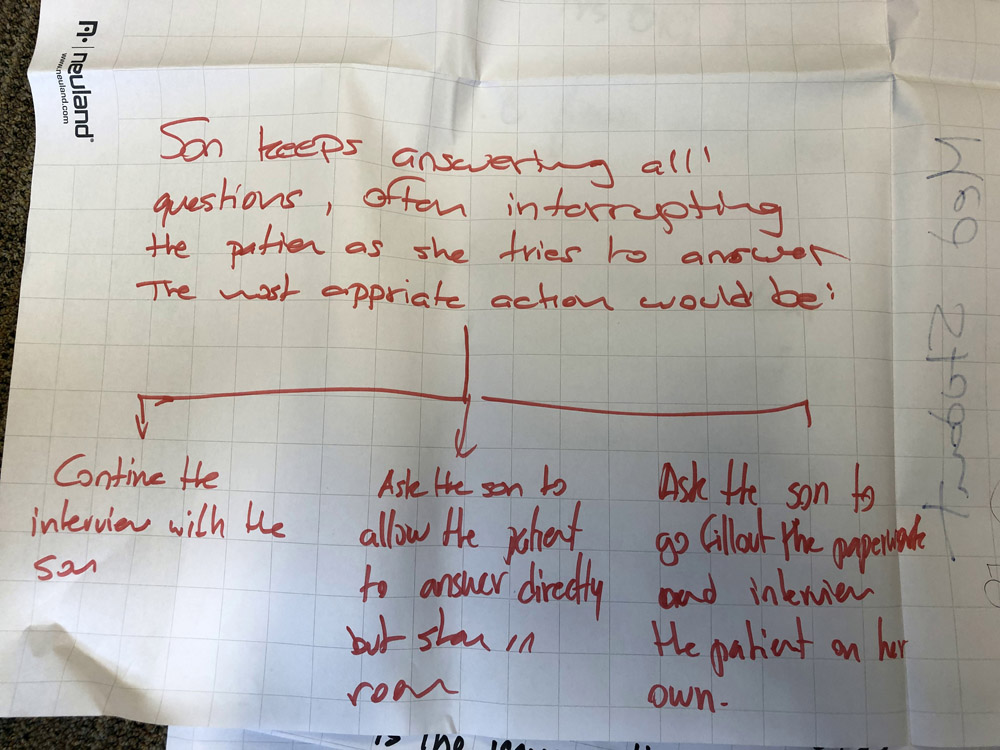 neuland
www.neuland.com
Son keeps answering all
questions, often interrupting
the patien as she tries to answer
The most appriate action would be:
Contine the
interview with the
son
Ask the son to
allow the patient
to answer directly
but stay in
room
Ask the son to
go fillout the paperwork
and interview
the patient on her
own.
is the